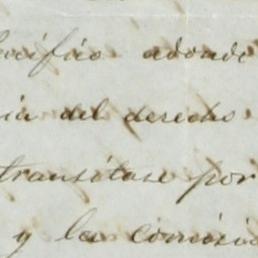 acífico adonde
ia del derecho
transitase por
y la comisio